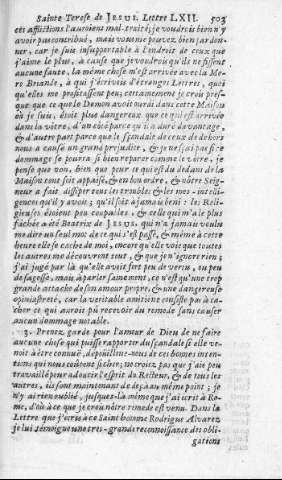 Sainte Terese de JESUS. Lettre LXII. 503
ces afflictions l'auroient mal-traité; je voudrois bien n'y
avoir pas contribué, mais vous ne pouvez bien pardon-
ner, car je suis insupportable à l'endroit de ceux que
j'aime le plus, à cause que je voudrois qu'ils ne fissent
aucune faute, la même chose m'est arrivée avec la Me-
re Briande, à qui j'écrivois d'étranges Lettres, quoi
qu'elles me profitassent peu; certainement je crois pres-
que que ce que le Demon avoit ourdi dans cette Maison
où je suis, étoit plus dangereux que ce qui est arrivée
dans la vôtre, d'un côté parce qu'il a duré davantage,
& d'autre part parce que le scandale de ceux de dehors
nous a causé un grand prejudice, & je ne sçai pas si le
dommage se pourra si bien reparer comme le vôtre, je
pense que non, bien que pour ce qui est du dedans de la
Maison tout soit appaisé, & en bon ordre, & nôtre Seig-
neur a fait dissiper tous les troubles & les mes-intelli-
gences qu'il y avoit; qu'il soit à jamais beni: les Reli-
gieuses étoient peu coupables, & celle qui m'a le plus
fâchée a été Beatrix de JESUS, qui n'a jamais voulu
me dire un seul mot de ce qui s'est passé, & même à cette
heure elle se cache de moi, encore qu'elle voie que toutes
les autres me découvrent tout, & que je n'ignore rien;
j'ai jugé par là qu'elle avoit fort peu de vertu, ou peu
de sagesse, mais à parler sainement, ce n'est qu'une trop
grande attache de son amour propre, & une dangereuse
opiniastreté, car la veritable amitié ne consiste pas à ca-
cher ce qui auroit pû recevoir du remede sans causer
aucun dommage notable.
3. Prenez garde pour l'amour de Dieu de ne faire
aucune chose qui puisse rapporter du scandale si elle ve-
noit à être connuë, dépoüillons-nous de ces bonnes inten-
tions qui nous coûtent si cher; ne croiez pas que j'aie peu
travaillé pour adoucir l'esprit du Recteur, & de tous les
autres, ils sont maintenant déja à un même point; je
n'y ai rien oublié, jusques-là même que j'ai écrit à Rome,
d'où à ce que je crois nôtre remede est venu. Dans la
Lettre que j'écris à ce Saint homme Rodrigue Alvarez
je lui témoigne une tres-grande reconnoissance des obli-
gations